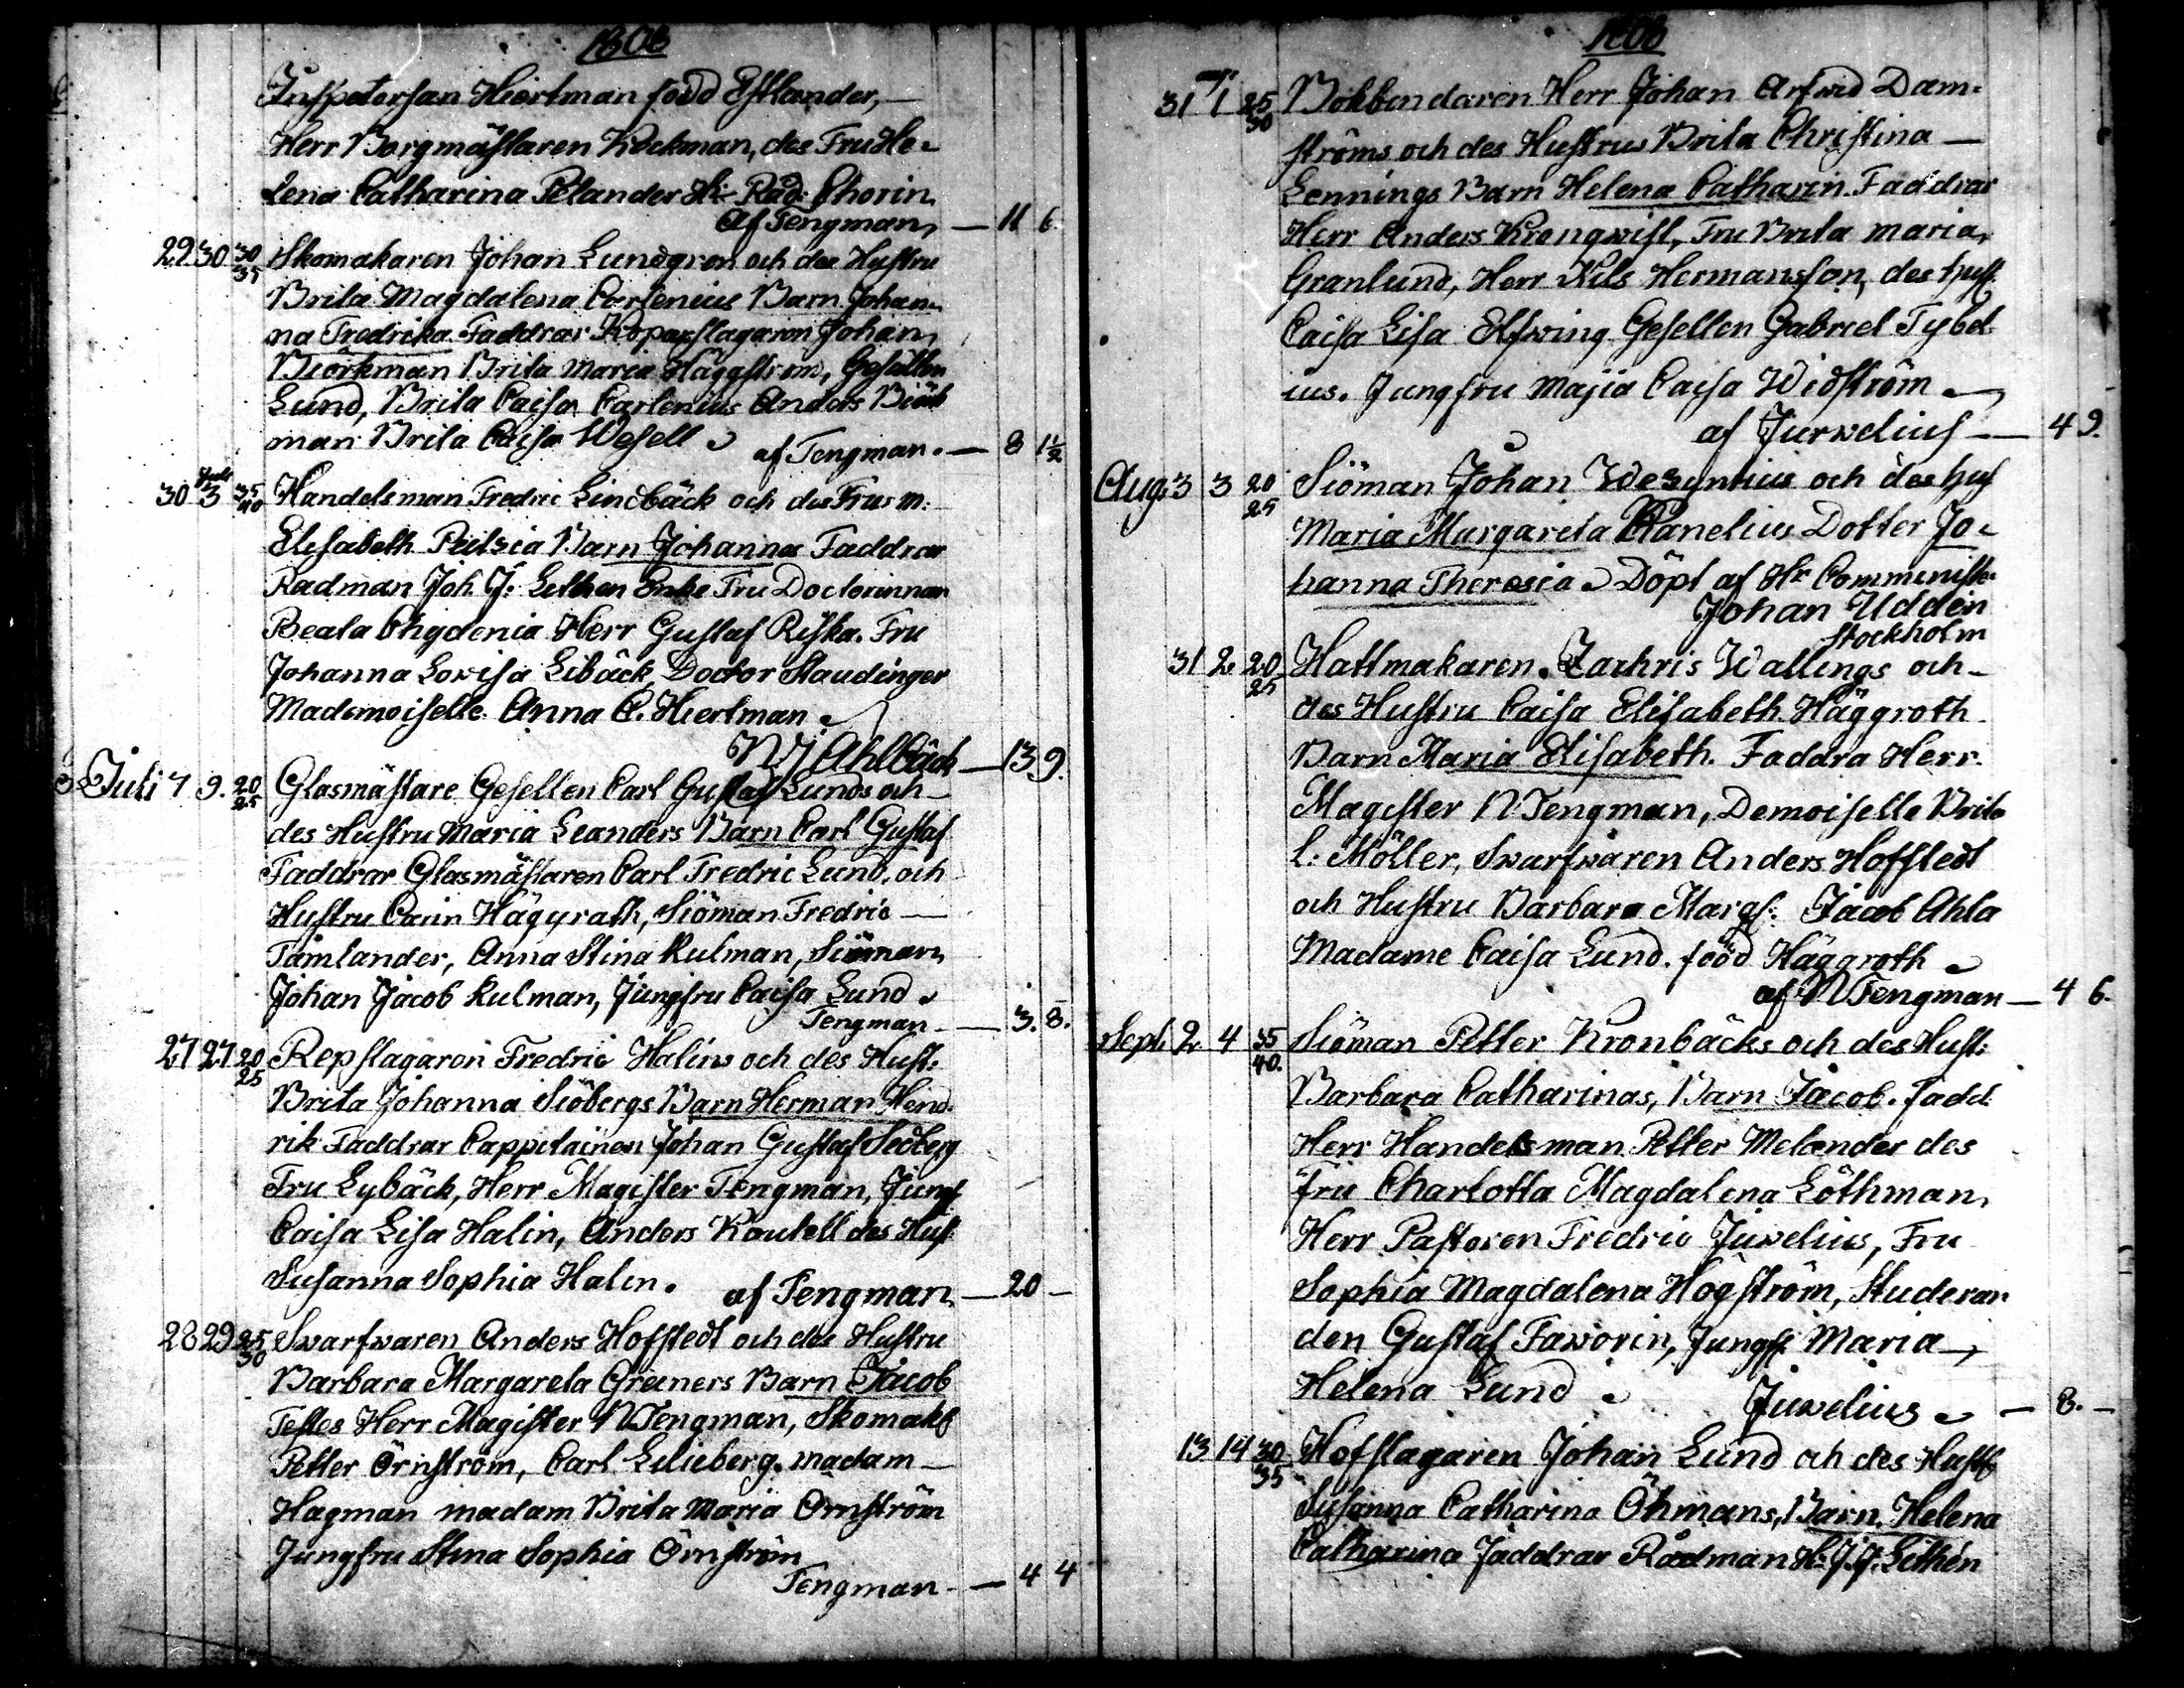 1808
Inspetorsan Hiertman född Estlander,
Herr Borgmästaren Kockman, des Fru He-
lena Catharina Pelander Hr Råd: Chorin
af Tengman, — 11 6.
29 30 30 35 Skomakaren Johan Lundgren och des Hustru
Brita Magdalena Carlenius Barn Johan-
na Fredrika Faddrar Koparslagaren Johan
Biörkman Brita Maria Häggström, Gesällen
Lund, Brita Caisa Carlenius Anders Biörk
man Brita Caisa Wesell
af Tengman. — 8 1½
30 Juli 3 35 40 Handelsman Fredric Lindbäck och des Frus M:
Elisabeth Peitzia Barn Johanna Faddrar
Radman Joh. J: Lithen Enke Fru Doctorinnan
Beata Chydenia Herr Gustaf Riska. Fru
Johanna Lovisa Libäck, Doctor Staudinger
Mademoiselle Anna C. Hiertman
Ahlbäck — 13 9.
Juli 7 9. 20 25 Glasmästare Gesellen Carl Gustaf Lunds och
des Hustru Maria Leanders Barn Carl Gustaf
Faddrar Glasmästaren Carl Fredric Lund, och
Hustru Carin Häggrath, Siöman Fredric
Tämlander, Anna Stina Kulman, Siöman
Johan Jacob Kulman, Jungfru Caisa Lund
Tengman — 3. 8.
27 27 20 25 Repslagaren Fredric Halins och des Hust:
Brita Johanna Siöbergs Barn Herman Hend-
rik Faddrar Cappitainen Johan Gustaf Sedberg
Fru Lybäck, Herr Magister Tengman, Jungf
Caisa Lisa Halin, Anders Kautell des Hus:
Susanna Sophia Halin.
af Tengman — 20 —
28 29 25 30 Swarfwaren Anders Hofstedt och des Hustru
Barbara Margareta Greiners Barn Jacob
Testes Herr Magister N Tengman, Skomak:
Petter Örnström, Carl Lilieberg. madam
Hagman madam Brita Maria Örnström
Jungfru Stina Sophia Örnström
Tengman — 4 4
1808
31 aug: 1 25 30 Bokbendaren Herr Johan Arfwid Dam-
ströms och des Hustrus Brita Christina
Lennings Barn Helena Catharin. Faddrar
Herr Anders Krongwist, Fru Brita Maria
Granlund, Herr Nils Hermansson, des hust
Caisa Lisa Elfwing Gesellen Gabriel Tybel-
ius. Jungfru Majia Caisa Widström
af Jurvelius — 4 9.
Aug: 3 3 20 25 Siöman Johan Wezyntius och des hus
Maria Margareta Planelius Dotter Jo-
hanna Theresia Döpt af Hr Comminist:
Johan Uddén
Stockholm
31 2 20 25 Hattmakaren Zachris Wallings och
des Hustru Caisa Elisabeth Häggroth
Barn Maria Elisabeth. Faddra Herr
Magister N Tengman, Demoiselle Brita
L: Möller, Swarfwaren Anders Hoffstedt
och Hustru Barbara Marg: Jacob Ahla
Madame Caisa Lund. född Häggroth
af N Tengman — 4 6.
Sept. 2 4 35 40. Siöman Petter Kronbäcks och des Hust:
Barbara Catharinas, Barn Jacob. fadd
Herr Handelsman Petter Melander des
Fru Charlotta Magdalena Löthman,
Herr Pastoren Fredric Juvelius, Fru
Sophia Magdalena Högström, Studeran
den Gustaf Faworin, Jungf: Maria
Helena Lund
Juvelius — 8. —
13 14 30 35 Hofslagaren Johan Lund och des Hust:
Susanna Catharina Öhmans, Barn. Helena
Catharina Faddrar Rådman H: J. J. Lithén